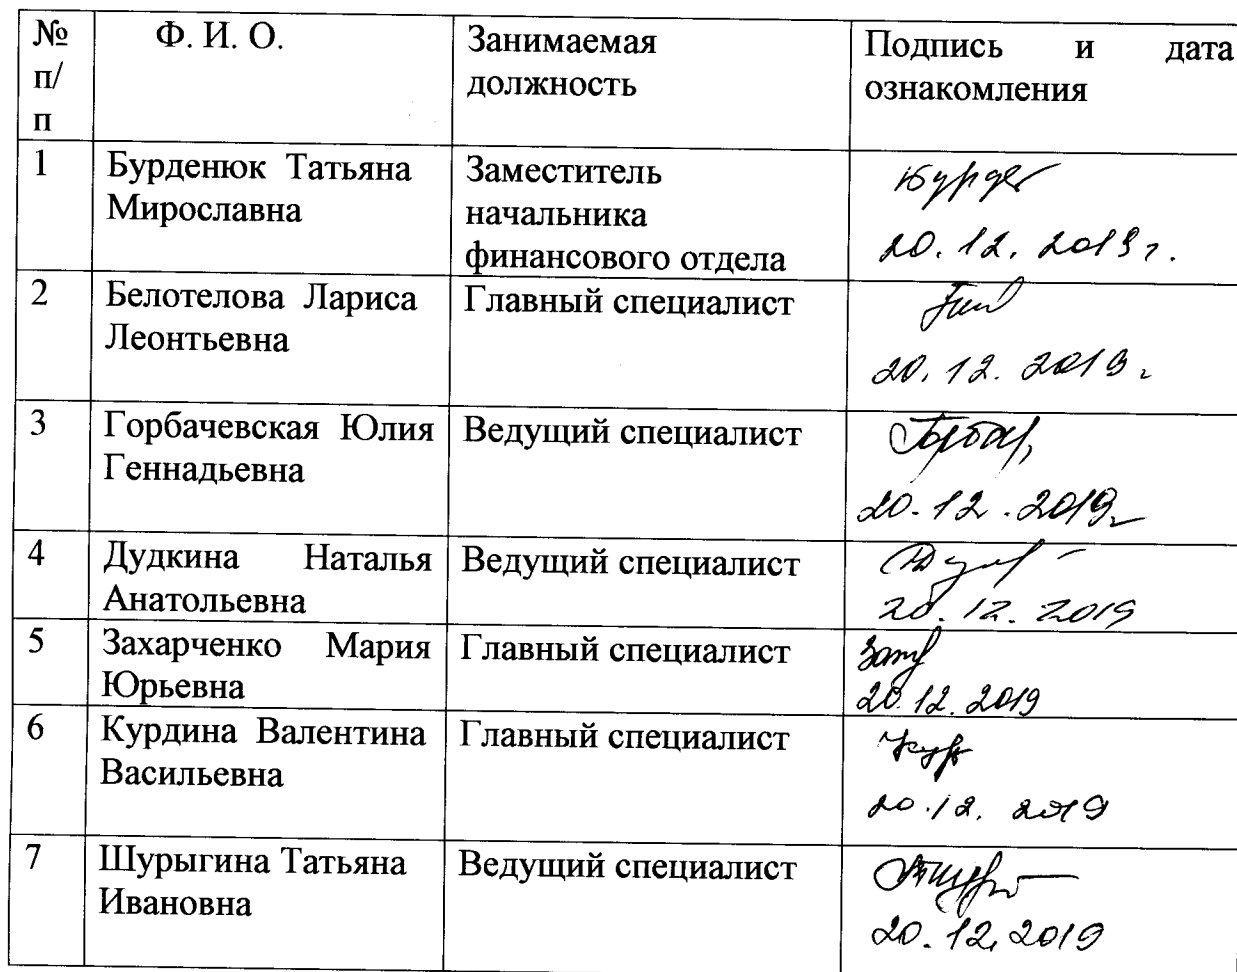 № п/п
Ф. И. О.
Занимаемая
должность
Подпись и дата
ознакомления
1
Бурденюк Татьяна
Мирославна
Заместитель
начальника
финансового отдела
20.12.2019г.
2
Белотелова Лариса
Леонтьевна
Главный специалист
20.12.2019г
3
Горбачевская Юлия
Геннадьевна
Ведущий специалист
20.12.2019г
4
Дудкина Наталья
Анатольевна
Ведущий специалист
20.12.2019
5
Захарченко Мария
Юрьевна
Главный специалист
20.12.2019
6
Курдина Валентина
Васильевна
Главный специалист
20.12.2019
7
Шурыгина Татьяна
Ивановна
Ведущий специалист
20.12.2019